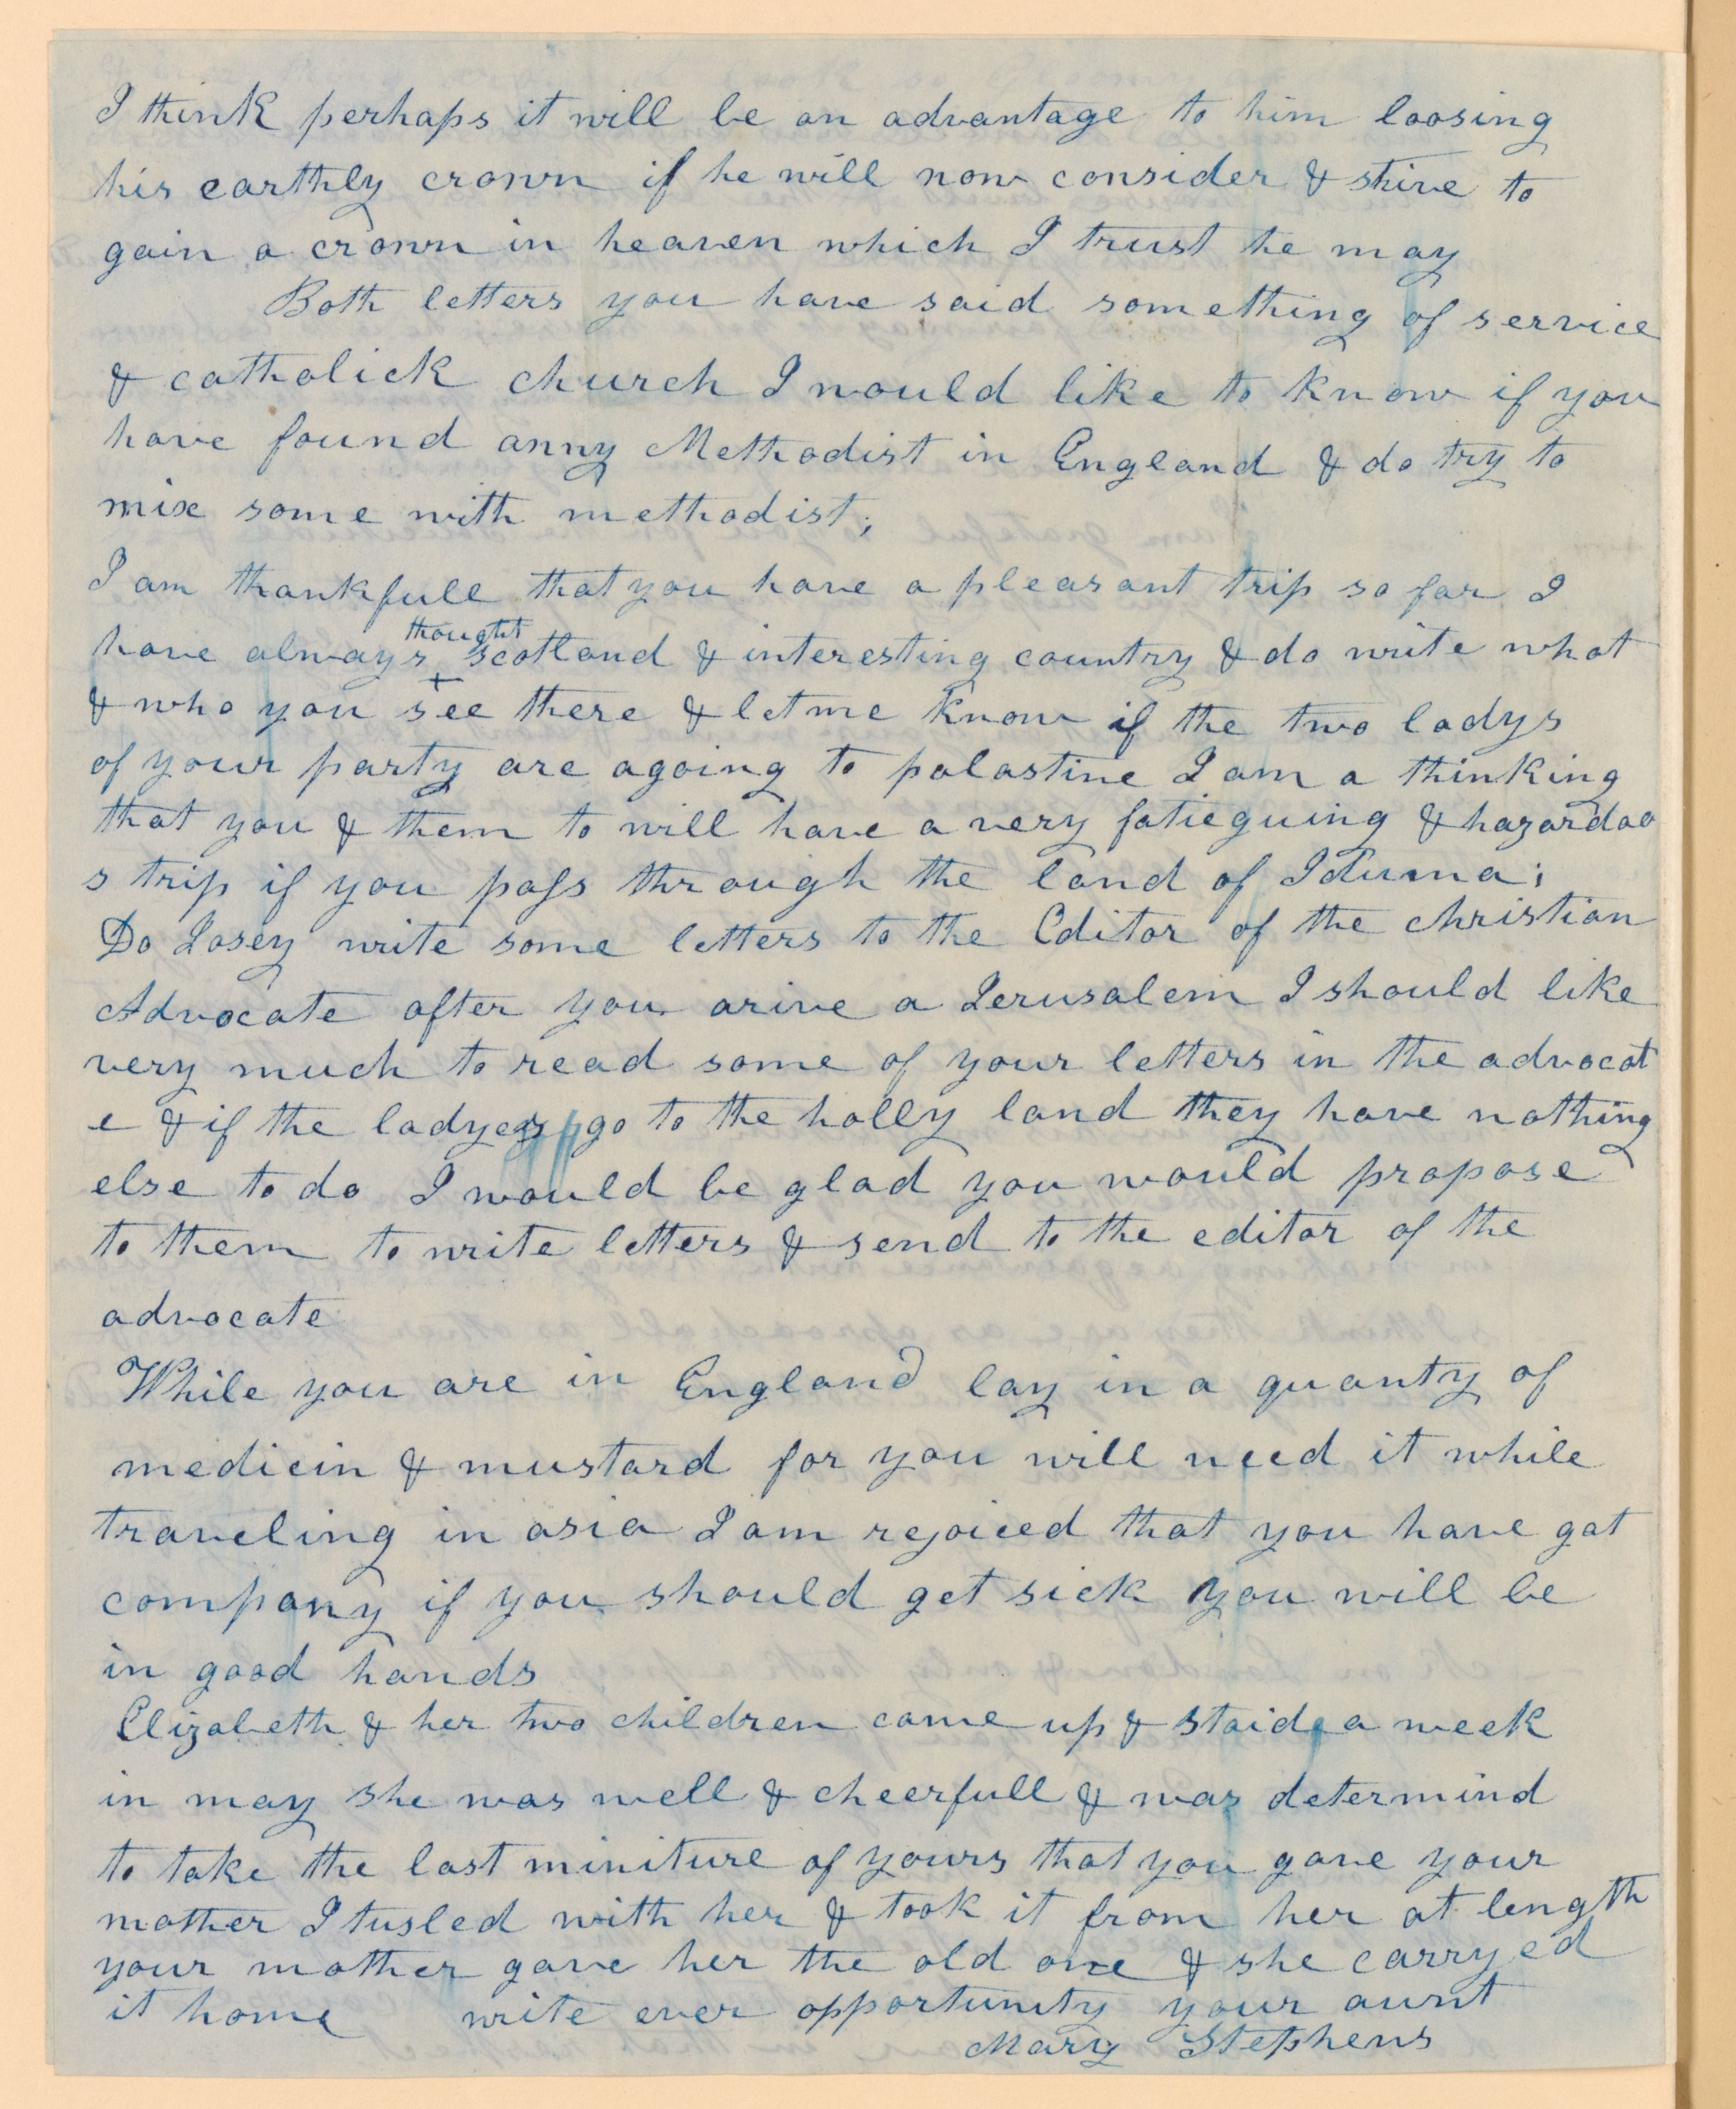 I think perhaps it will be an advantage to him loosing
his earthly crown if he will now consider & strive to
gain a crown in heaven which I trust he may
Both letters you have said something of service
& catholick church I would like to know if you
have found anny Methodist in England & do try to
mix some with methodist;
I am thankfull that you have a pleasant trip so far I
thought
have always + scotland & interesting country & do write what
& who you see there & let me know if the two ladys
of your party are agoing to palastine I am a thinking
that you & them to will have a very fatieguing & hazardoo
s trip if you pass through the land of Iduma;
Do Josey write some letters to the Editor of the christian
Advocate after you arive a Jerusalem I should like
very much to read some of your letters in the advocat
e & if the ladyes go to the holly land they have nothing
else to do I would be glad you would propose
to them to write letters & send to the editor of the
advocate
While you are in England lay in a quanty of
medicin & mustard for you will need it while
traveling in asia I am rejoiced that you have got
company if you should get sick you will be
in good hands
Elizabeth & her two children came up & staid a week
in may she was well & cheerfull & was determind
to take the last miniture of yours that you gave your
mother I tusled with her & took it from her at length
your mother gave her the old one & she carryed
it home write ever opportunity your aunt
Mary Stephens